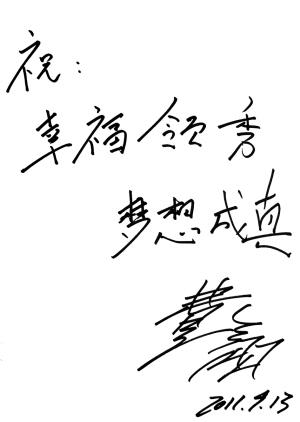 祝：
幸福领秀
梦想成真
2011.9.13